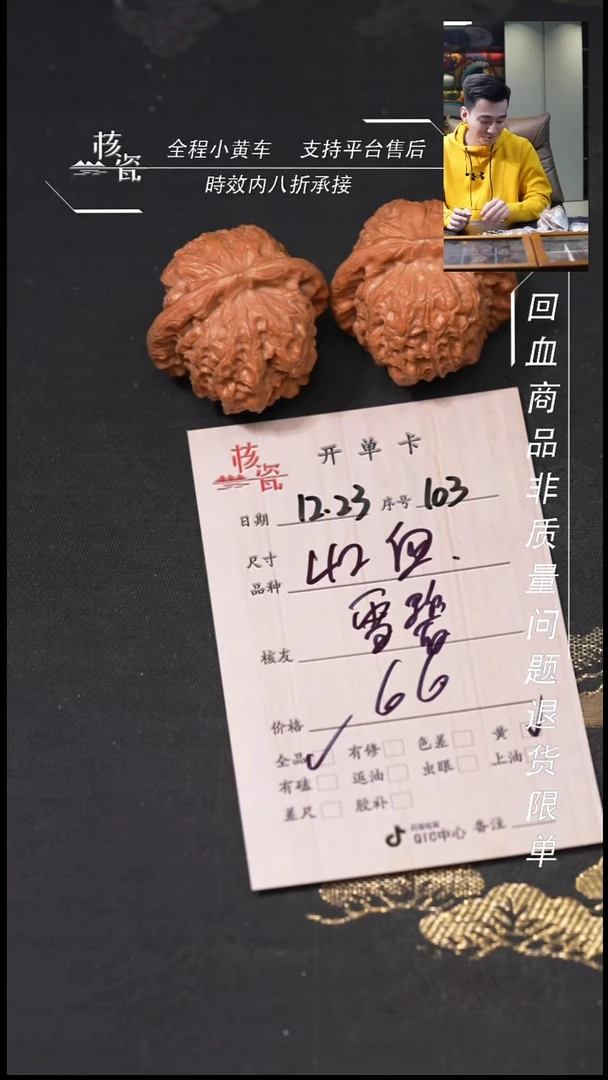 核瓷
全程小黄车 支持平台售后
時效内八折承接
回血商品非质量问题退货限单
核瓷
开单卡
日期 12.23 序号 103
尺寸
品种 42 血.
雪碧
核友
66
价格
全品 有修 色差 黄
有磕 返油 虫眼 上油
差尺 胶补
QIC中心 备注